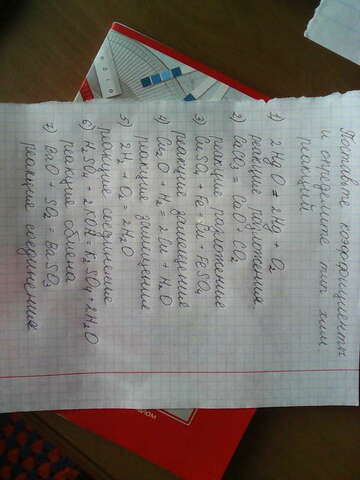 Поставьте коэффициенты
и определите тип хим
реакций
1) 2HgO = 2Hg + O₂
реакция разложения
2) CaCO₃ = CaO + CO₂
реакция разложение
3) CuSO₄ + Fe = Cu + FeSO₄
реакция замещения
4) Cu₂O + H₂ = 2Cu + H₂O
реакция замещение
5) 2H₂ + O₂ = 2H₂O
реакция соединение
6) H₂SO₄ + 2KOH = K₂SO₄ + 2H₂O
реакция обмена
7) BaO + SO₂ = BaSO₃
реакция соединения